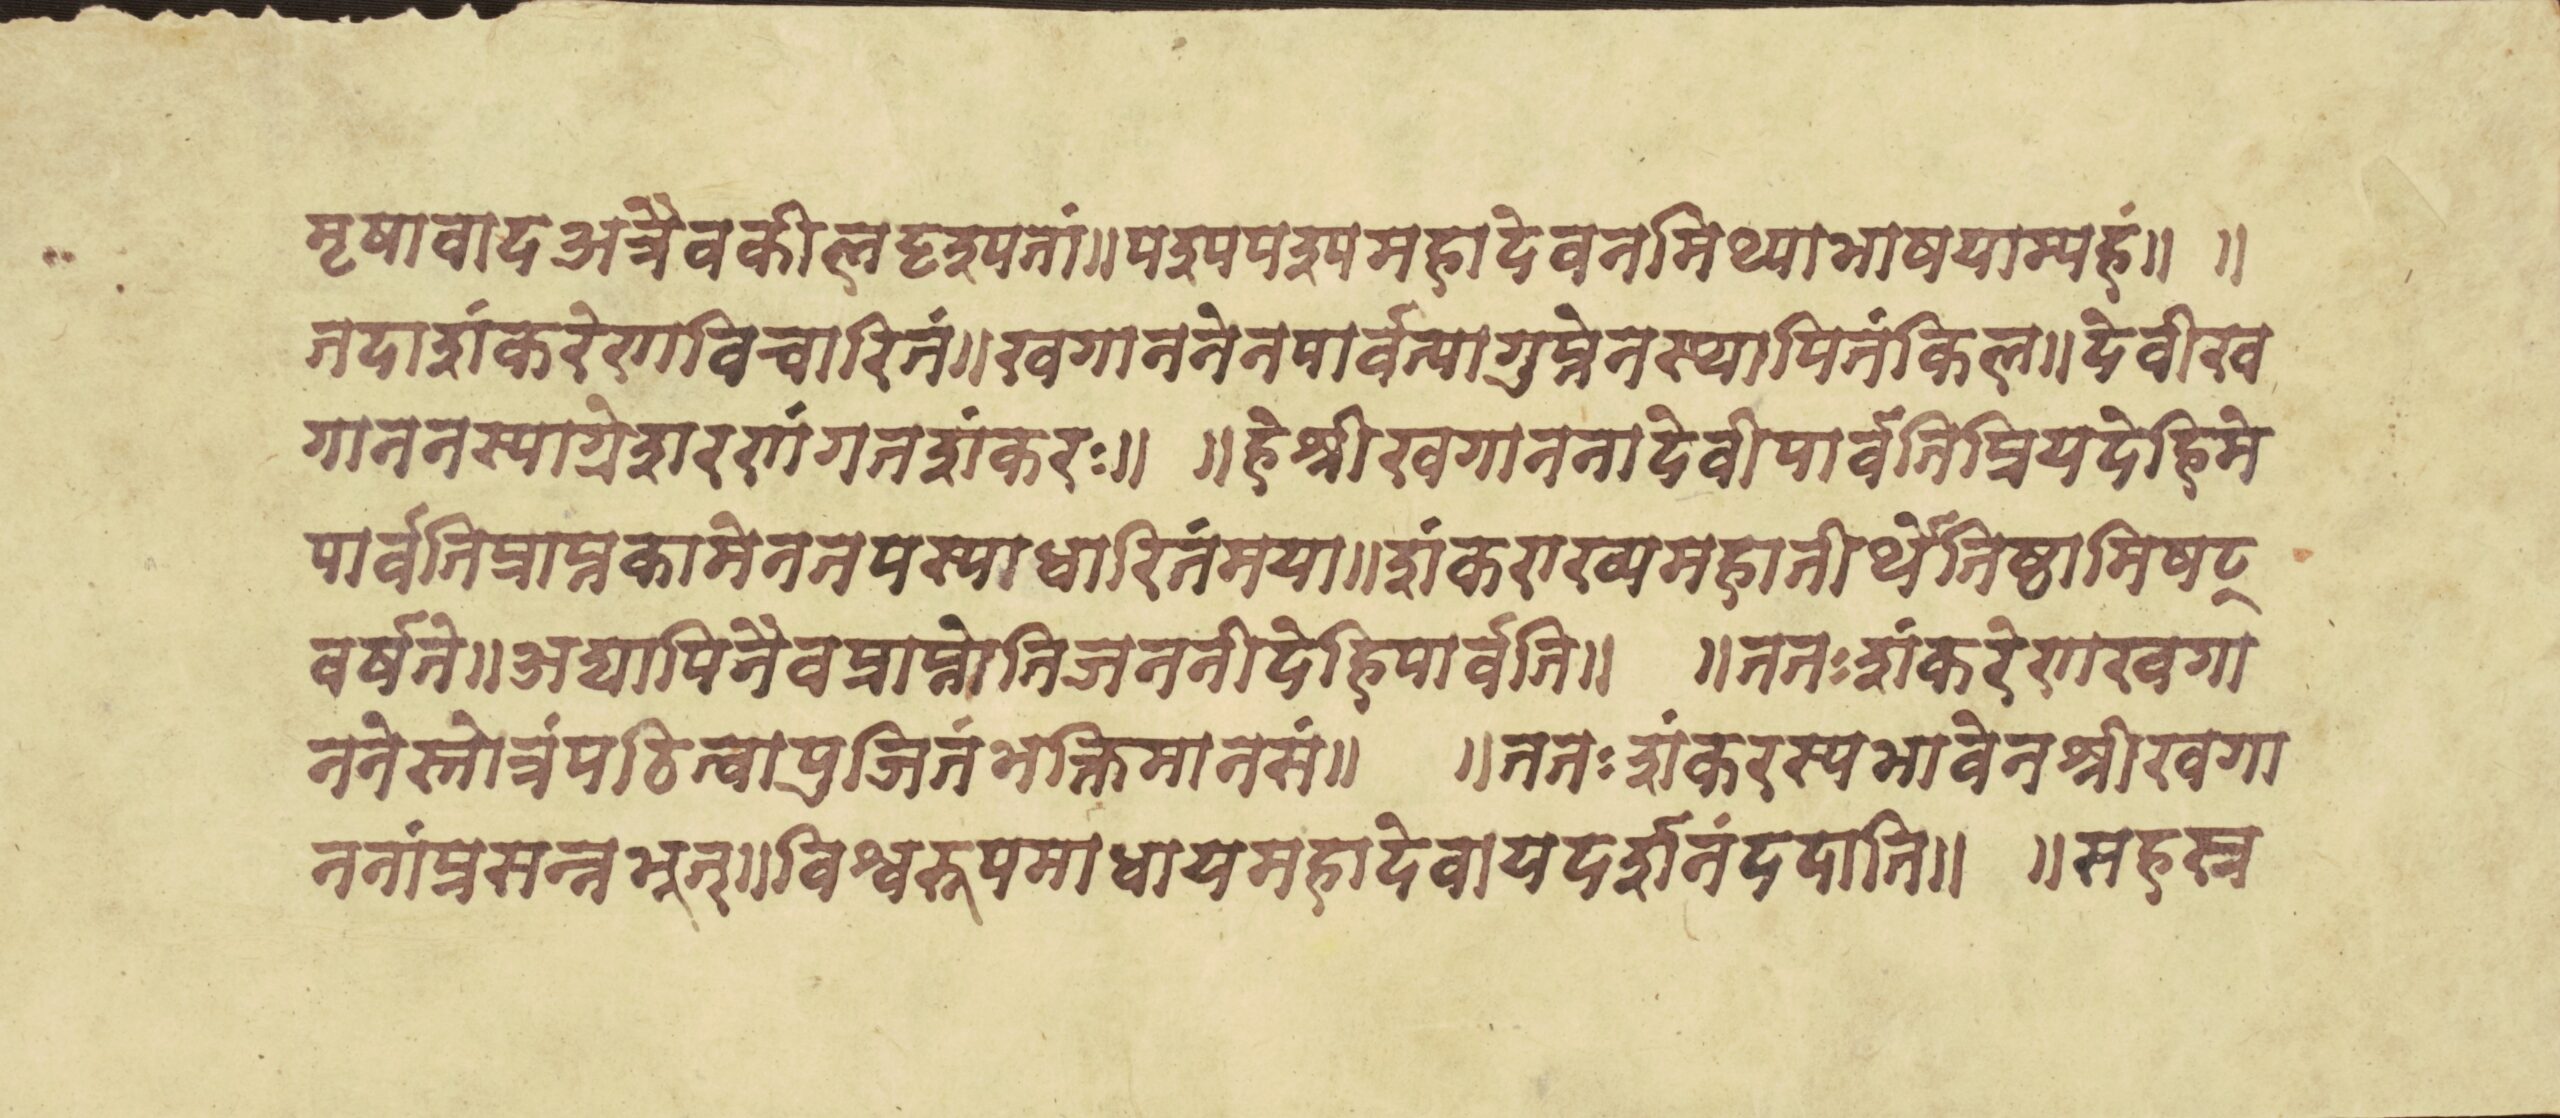 मृषावादअत्रैवकीलदृश्यतां॥पश्यपश्यमहादेवनमिथ्याभाषयाम्यहं॥ ॥
तदाशंकरेणविचारितं॥खगाननेनपार्वत्यागुप्तेनस्थापितंकिल॥देवीख
गाननस्याग्रेशरणंगतशंकरः॥ ॥हेश्रीखगाननादेवीपार्वतिप्रियदेहिमे
पार्वतिप्राप्तकामेनतपस्याधारितंमया॥शंकराख्यमहातीर्थेतिष्ठामिषट्
वर्षते॥अद्यापिनैवप्राप्तोतिजननीदेहिपार्वति॥ ॥ततःशंकरेणखगा
ननेस्तोत्रंपठित्वापुजितंभक्तिमानसं॥ ॥ततःशंकरस्यभावेनश्रीखगा
ननांप्रसन्नभूत्॥विश्वरूपमाधायमहादेवायदर्शनंददाति॥ ॥सहस्त्र